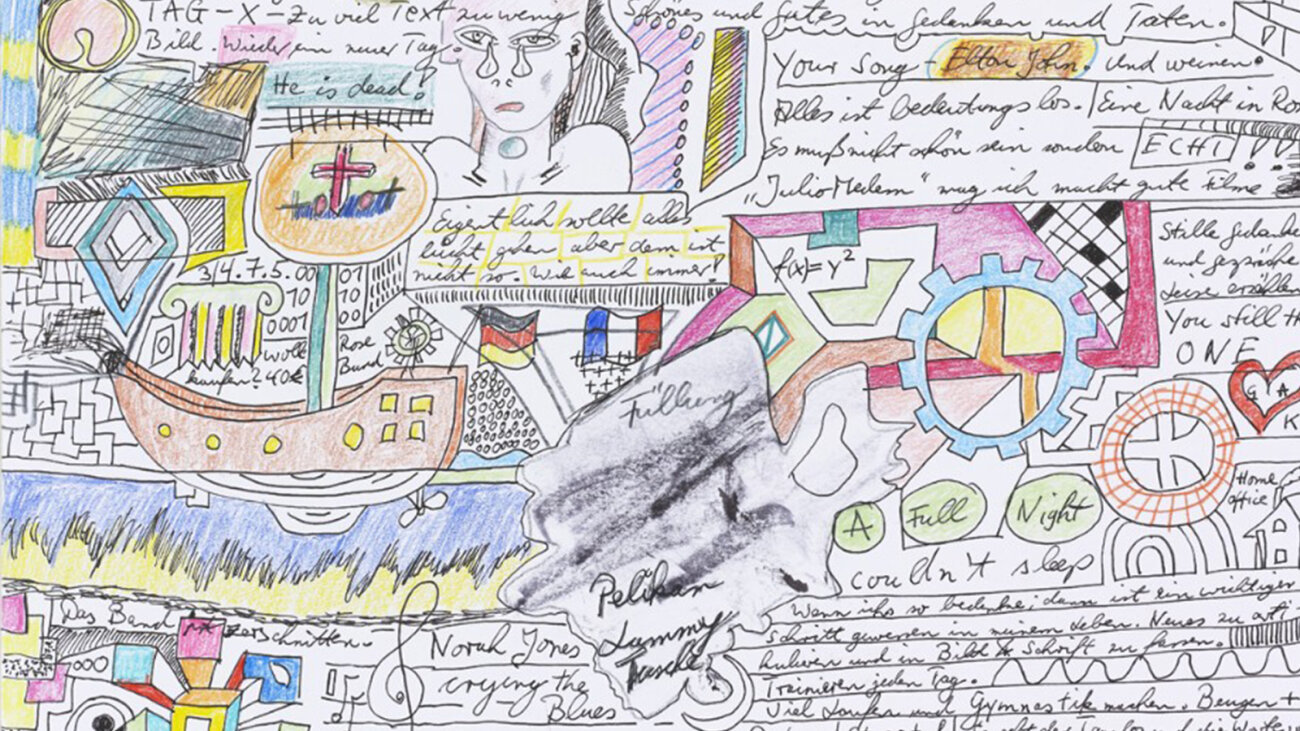 TAG-X-Zu viel Text zu wenig
Bild. Wieder ein neuer Tag.
He is dead!
Schönes und Gutes in Gedanken und Taten.
Your Song - Elton John. Und weinen.
Alles ist bedeutungslos. Eine Nacht in
Es muß nicht schön sein sondern ECHT
"Julio Medem" mag ich macht gute Filme
Eigentlich sollte alles
leicht gehen aber dem ist
nicht so. Wie auch immer!
f(x)=y²
Stille
und
Leise
You still
ONE
G A
K
3|4.7.5.00 01
10 10
0001 00
Wolle Rose
kaufen? 40€ Band
Füllung
Pelikan
Lammy
Tasche
A Full Night
couldn't sleep
Home
office
Das Band ist zerschnitten.
Norah Jones
crying the
Blues
Wenn ichs so bedenke; dann ist ein wichtiger
Schritt gewesen in meinem Leben. Neues zu
und in Bild & Schrift zu fassen.
Trainieren jeden Tag.
Viel Laufen und Gymnastik machen. Beugen +